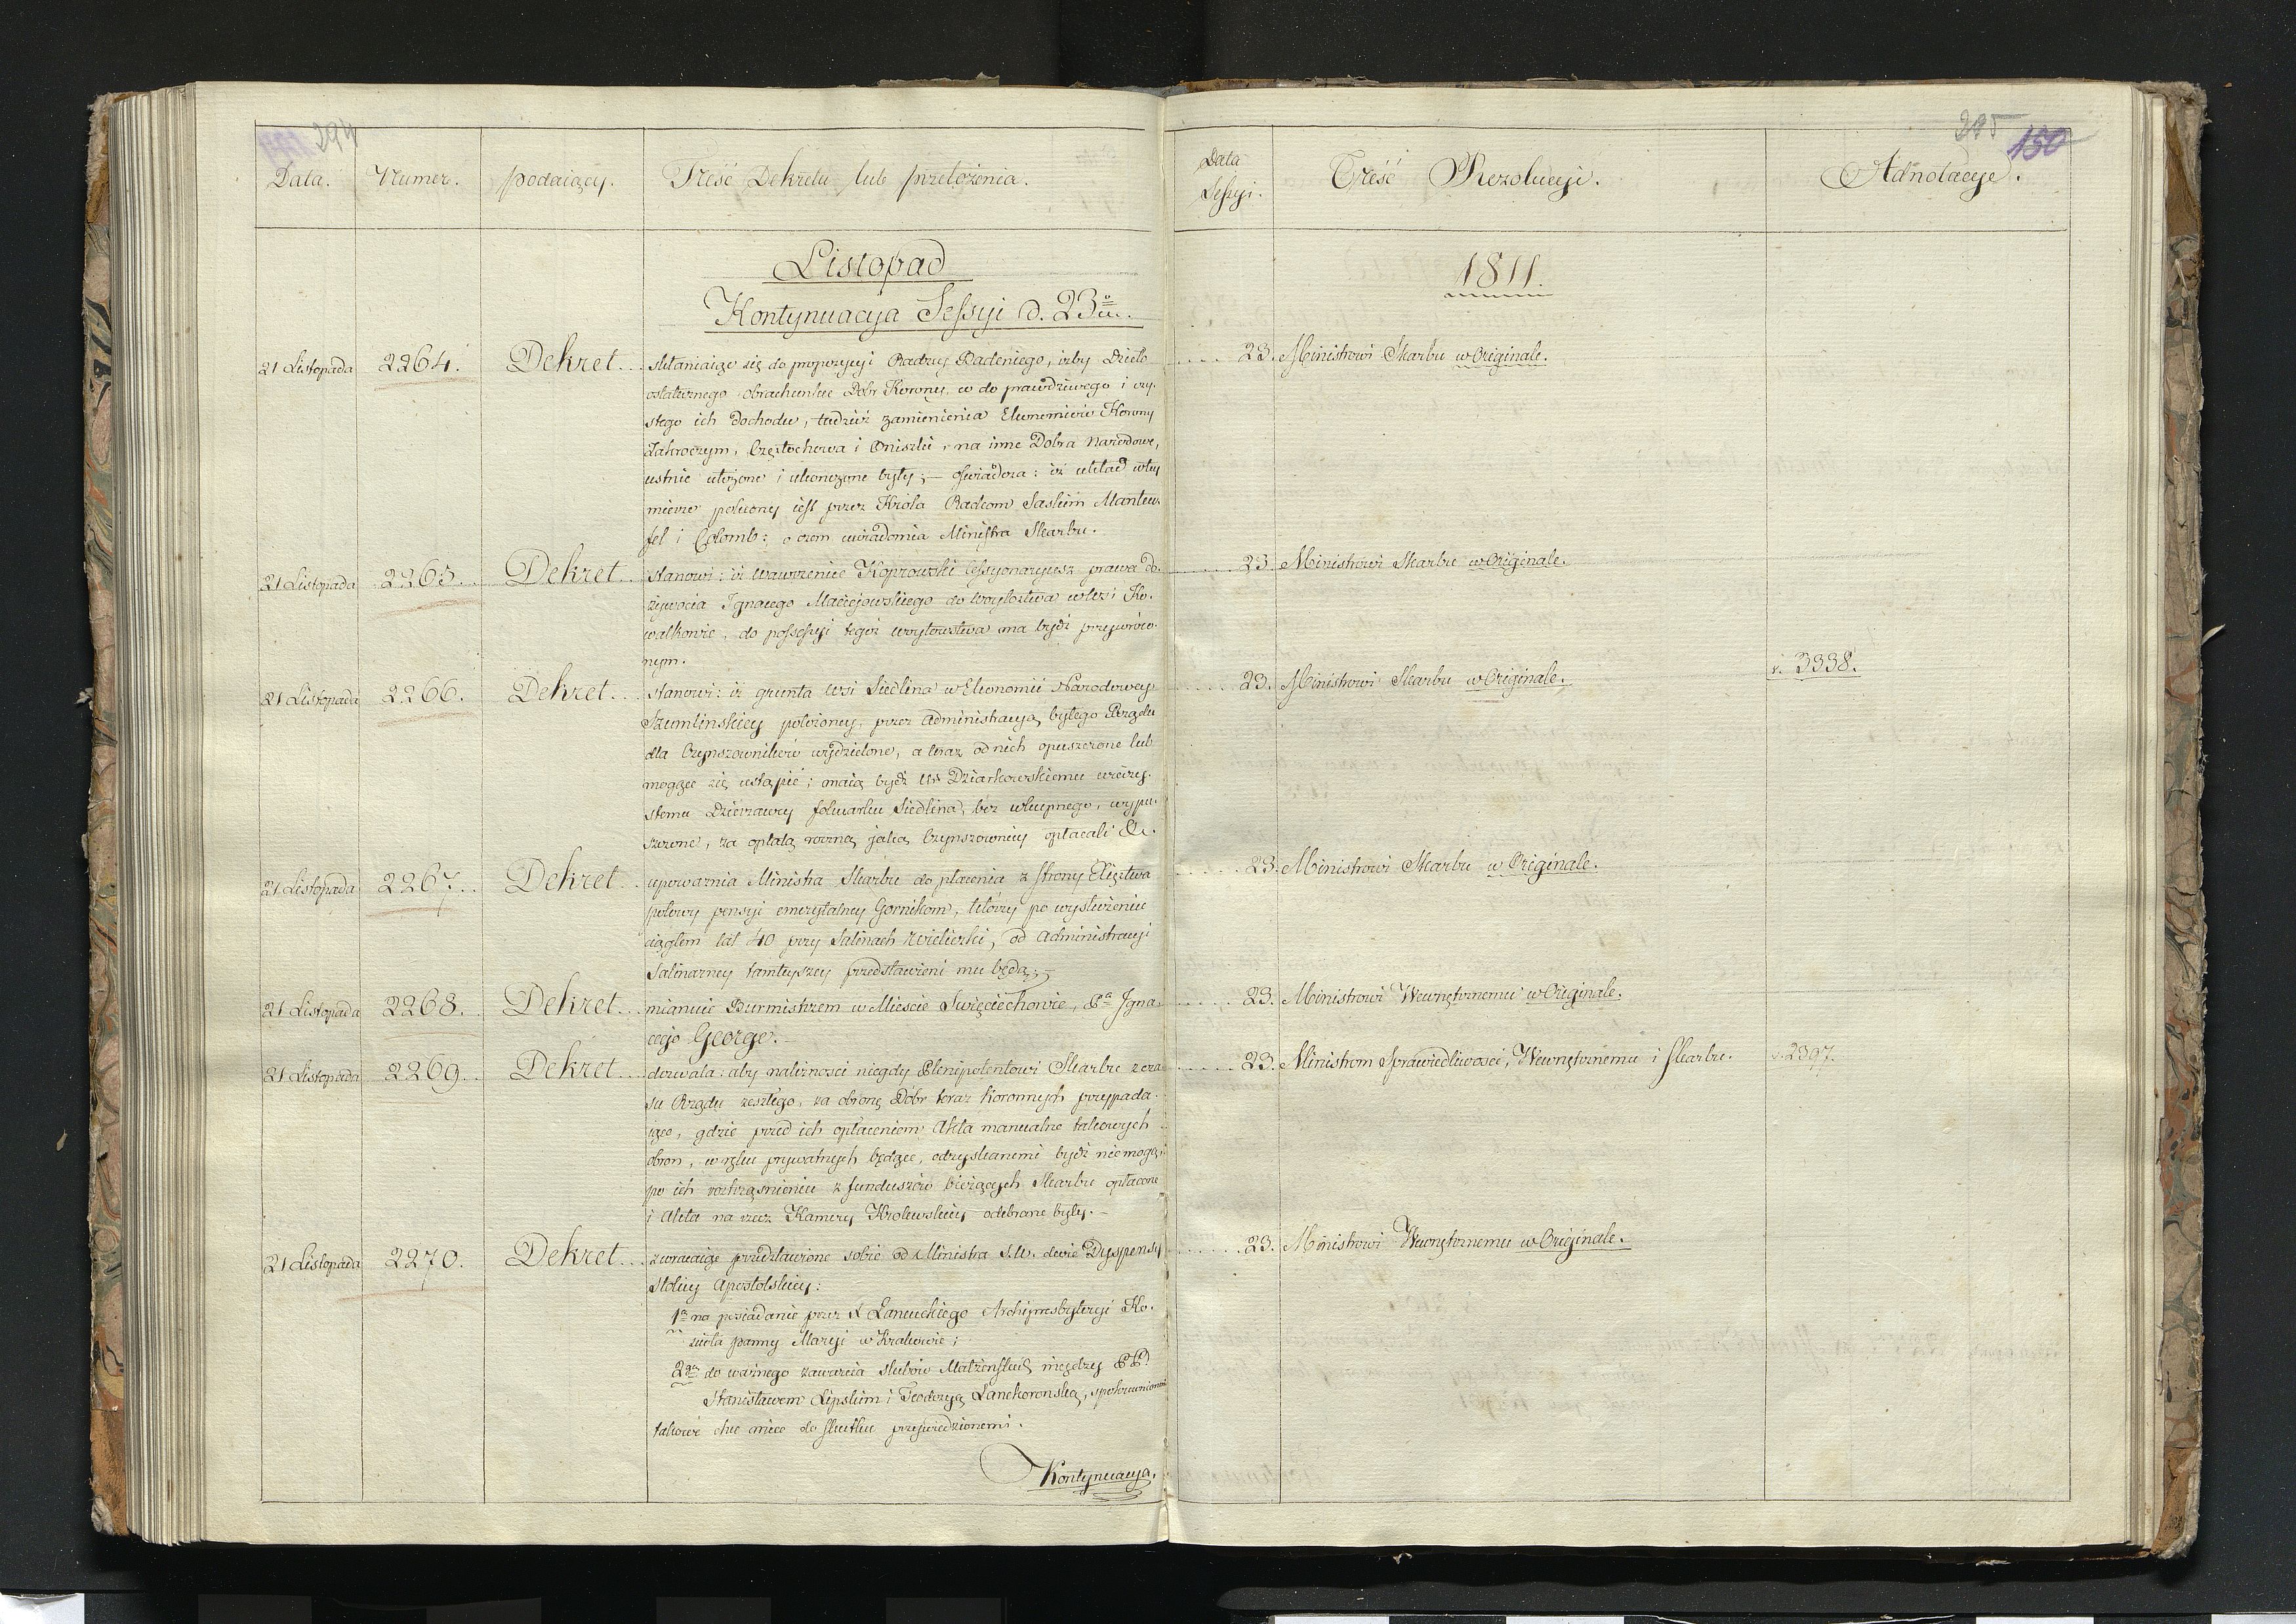 294
Data. Numer. podaiący. Treść Dekretu lub przełożenia.
Listopad
Kontynuacyja Sessyi d. 23io.
21 Listopada 2264. Dekret... skłaniaiąc się do propozycyi Radzcy Badeniego, iżby dzieło
ostatecznego obrachunku Dobr Korony, co do prawdziwego i czy-
stego ich dochodu, tudzież zamienienia Ekonomiow Korony
Zakroczym, Częstochowa i Oniszki, na inne Dobra Narodowe,
ustnie ułożone i ukończone były; — oświadcza: iż układ w tey
mierze polecony iest przez Króla Radcom Saskim Manteu-
fel i Colomb; o czem uwiadomia Ministra Skarbu.
21 Listopada 2265. Dekret... stanowi: iż Wawrzeniec Koprowski Cessyonaryusz prawa do-
żywocia Ignacego Maciejowskiego do woytostwa w Wsi Ko-
walkowie, do possessyi tegoż woytowstwa ma bydź przywróco-
nym.
21 Listopada 2266. Dekret... stanowi: iż grunta wsi Siedlina w Ekonomii Narodowey
Szumlinskiey położoney, przez administracyą byłego Rządu
dla Czynszowników wydzielone, a teraz od nich opuszczone lub
mogące się ustąpić; maią bydź Ur Dziarkowskiemu wieczy-
stemu dzierżawcy folwarku Siedlina, bez wkupnego, wypu-
szczone, za opłatą roczną jaką Czynszownicy opłacali &c.
21 Listopada 2267. Dekret... upoważnia Ministra Skarbu do płacenia z strony Xięztwa
połowy pensyi emerytalney Gornikom, którzy po wysłużeniu
ciągłem lat 40 przy Salinach Wieliczki, od Administracyi
Salinarney tamteyszey przedstawieni mu będą;—
21 Listopada 2268. Dekret... mianuie Burmistrzem w Mieście Swięciechowie, Pa Igna-
cego George.—
21 Listopada 2269. Dekret... dozwala: aby należności niegdy Plenipotentowi Skarbu z cza-
su Rządu zeszłego, za obronę Dóbr teraz koronnych przypada-
iące, gdzie przed ich opłaceniem Akta manualne takowych
obron, w ręku prywatnych będące, odzyskanemi bydź nie mogą;
po ich roztrząśnieniu z funduszów bieżących Skarbu opłacone
i Akta na rzecz Kamery Królewskiey odebrane były.—
21 Listopada 2270. Dekret... zwracaiąc przedstawione sobie od Ministra S.W. dwie Dyspensy
Stolicy Apostolskiey:
1a na posiadanie przez X Łancuckiego Archipresbyteryi Ko-
ścioła panny Maryi w Krakowie;
2ga do ważnego zawarcia slubów Małżenskich między PP.
Stanisławem Lipskim i Teodozyą Lanckorońską, spokrewnionemi
takowe chce mieć do skutku przywiedzionemi.
Kontynuacya.
295
150
Data Sessyi. Treść Rezolucyi. Adnotacye.
1811.
23. Ministrowi Skarbu w Originale.
23. Ministrowi Skarbu w Originale.
23. Ministrowi Skarbu w Originale. v. 3338.
23. Ministrowi Skarbu w Originale.
23. Ministrowi Wewnętrznemu w Originale.
23. Ministrom Sprawiedliwosci, Wewnętrznemu i Skarbu. v. 2397.
23. Ministrowi Wewnętrznemu w Originale.